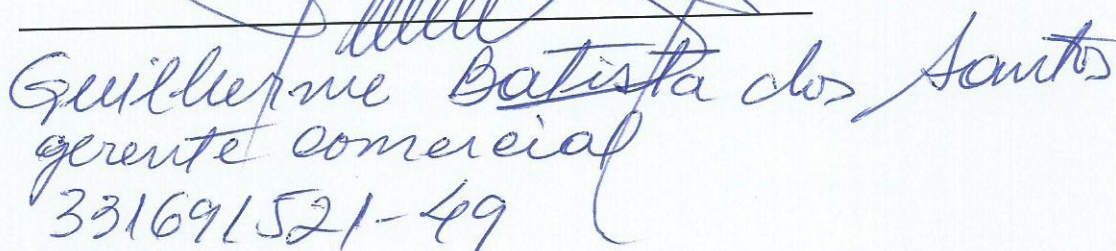 Guilherme Batista dos Santos
gerente comercial
331691521-49